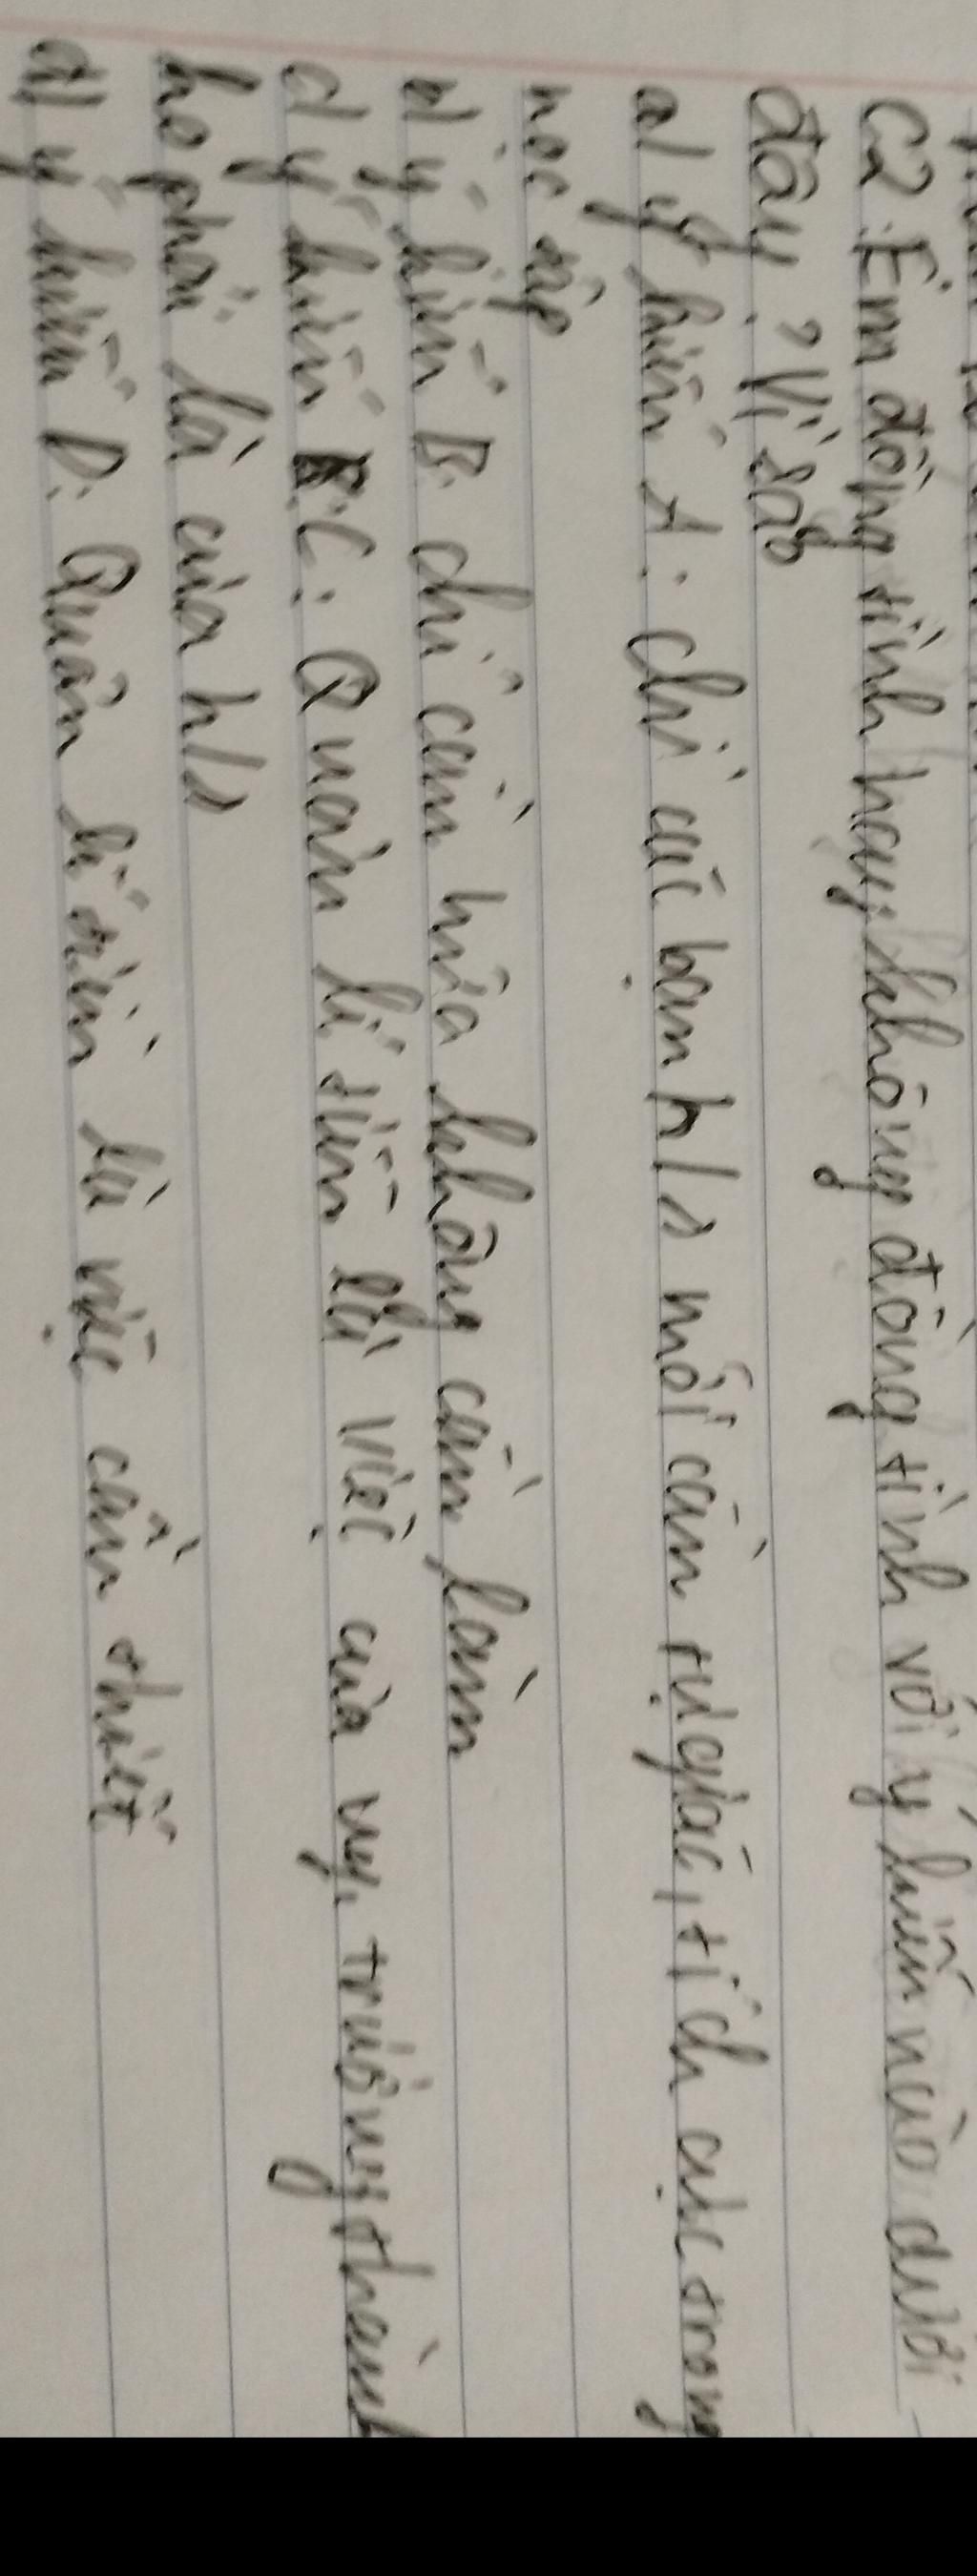 C2. Em đồng tình hay không đồng tình với ý kiến nào dưới
đây, vì sao
a) ý kiến A: chỉ các bạn h/s mới cần tự giác, tích cực trong
học tập
b) ý kiến B. chỉ cần hứa không cần làm
c) ý kiến C: Quản lí tiền là việc của ng. trưởng thành
ho phải là của h/s
d) ý kiến D: Quản lí tiền là việc cần thiết